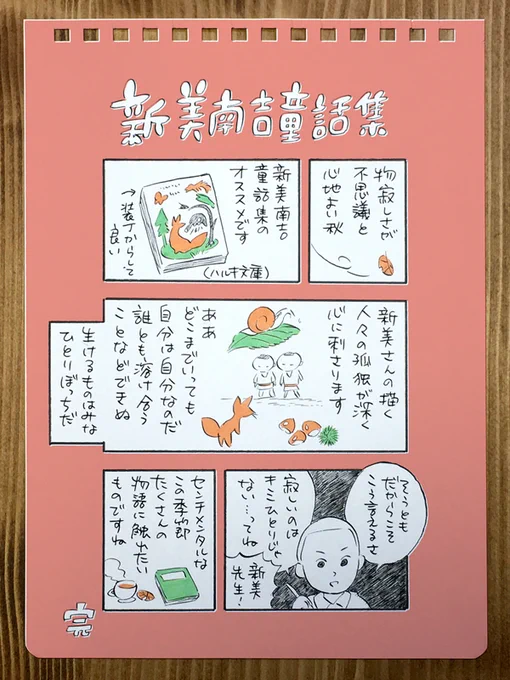 新美南吉童話集
物寂しさが
不思議と
心地よい秋
新美南吉
童話集の
オススメです
(ハルキ文庫)
→装丁からして
良い
新美さんの描く
人々の孤独が深く
心に刺さります
ああ
どこまでいっても
自分は自分なのだ
誰とも溶け合う
ことなどできぬ
生けるものはみな
ひとりぼっちだ
そうとも
だからこそ
こう言えるさ
寂しいのは
キミひとりじゃ
ない…ってね
新美
先生!
センチメンタルな
この季節
たくさんの
物語に触れたい
ものですね
完